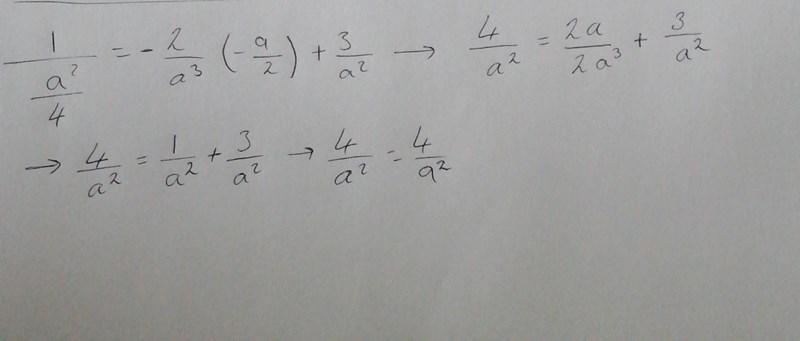 1/(a²/4) = - 2/a³ (-a/2) + 3/a² → 4/a² = 2a/2a³ + 3/a²
→ 4/a² = 1/a² + 3/a² → 4/a² = 4/a²